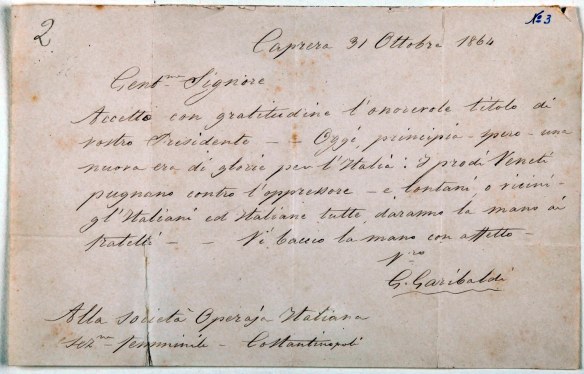 2
No 3
Caprera 31 Ottobre 1864
Gentme Signore
Accetto con gratitudine l'onorevole titolo di
vostro Presidente — — Oggi, principia - spero - una
nuova era di glorie per l'Italia: I prodi Veneti
pugnano contro l'oppressore - e lontani o vicini
gl'Italiani ed Italiane tutte daranno la mano ai
fratelli — — Vi bacio la mano con affetto —
Vro
G. Garibaldi
Alla società Operaja Italiana
femminile - Costantinopoli